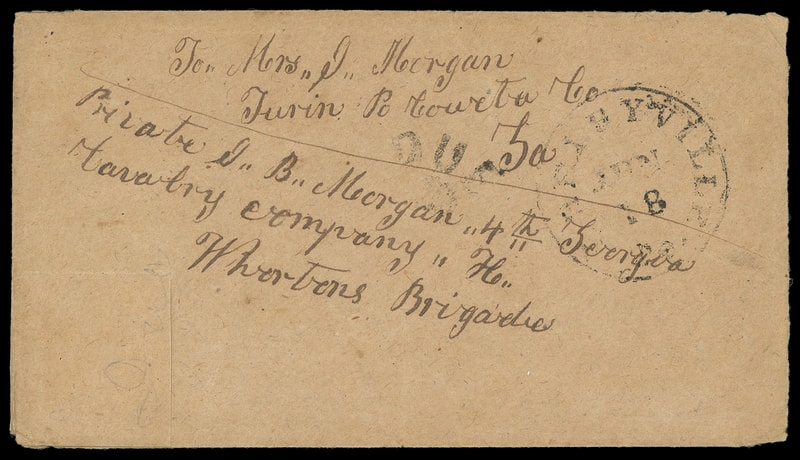 To„ Mrs„ J„ Morgan
Turin Po Coweta Co
Ga
Private J„ B„ Morgan „4th Georgia
Cavalry company „H„
Whortons Brigade
DUE
SHELBYVILLE
JUN
18